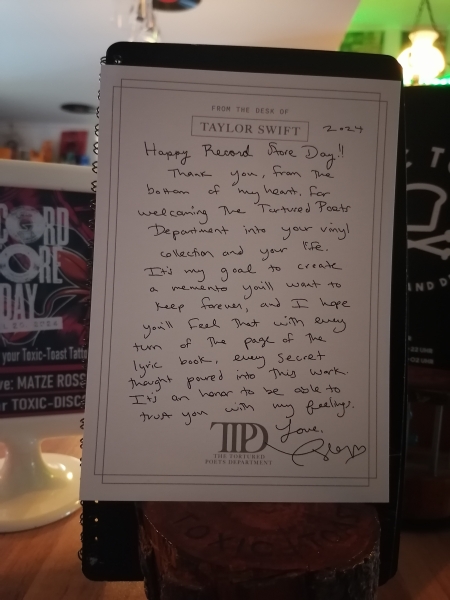 FROM THE DESK OF
TAYLOR SWIFT
2024
Happy Record Store Day!!
Thank you, from the
bottom of my heart, for
welcoming The Tortured Poets
Department into your vinyl
collection and your life.
It's my goal to create
a memento you'll want to
keep forever, and I hope
you'll feel that with every
turn of the page of the
lyric book, every secret
thought poured into this work.
It's an honor to be able to
trust you with my feelings.
Love,
TTPD
THE TORTURED
POETS DEPARTMENT
CORD
ORE
DAY
your Toxic-Toast
ve: MATZE ROSS
r TOXIC-DISC
TO
AND
TOXIC TOAST